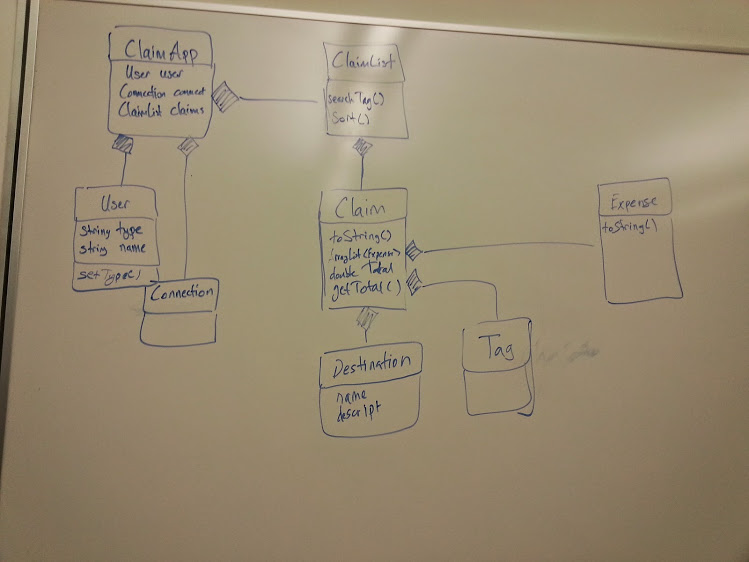 ClaimApp
User user
Connection connect
ClaimList claims
ClaimList
searchTag()
Sort()
User
string type
string name
setType()
Connection
Claim
toString()
ArrayList<Expense>
double Total
getTotal()
Expense
toString()
Destination
name
descript
Tag